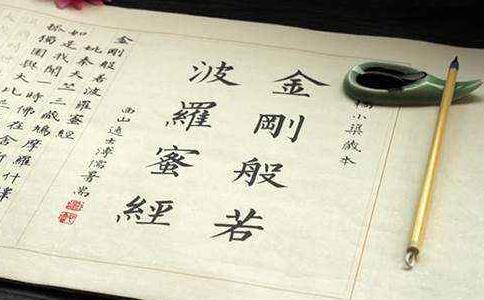 藏本
金剛般若
波羅蜜經
西山逸士溥儒書耑
金剛般若波羅蜜經
姚秦天竺三藏鳩摩羅什譯
如是我聞一時佛在舍
孤獨園與大比